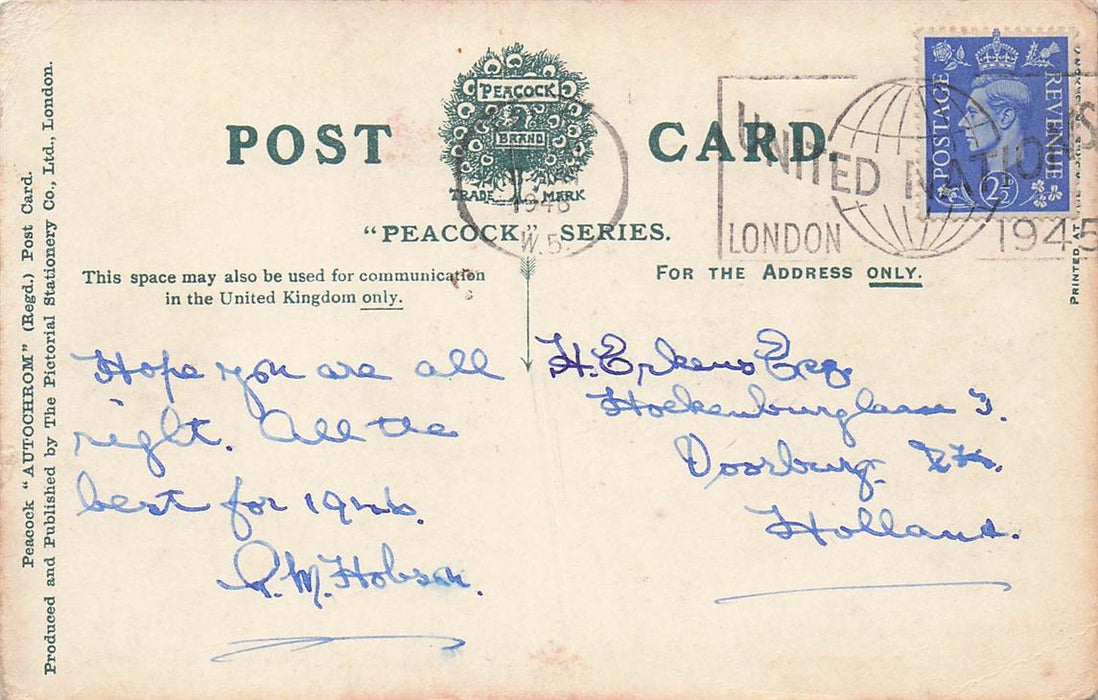 Peacock "AUTOCHROM" (Regd.) Post Card.
Produced and Published by The Pictorial Stationery Co., Ltd., London.
POST CARD.
PEACOCK
BRAND
TRADE MARK
"PEACOCK" SERIES.
1946
W.5.
UNITED NATIONS
LONDON 1945
POSTAGE REVENUE
2½D
PRINTED AT
This space may also be used for communication
in the United Kingdom only.
FOR THE ADDRESS ONLY.
Hope you are all
right. All the
best for 1946.
P.M. Hobson.
H. Erkens Esq
Hoekenburglaan 7.
Voorburg. ZH.
Holland.